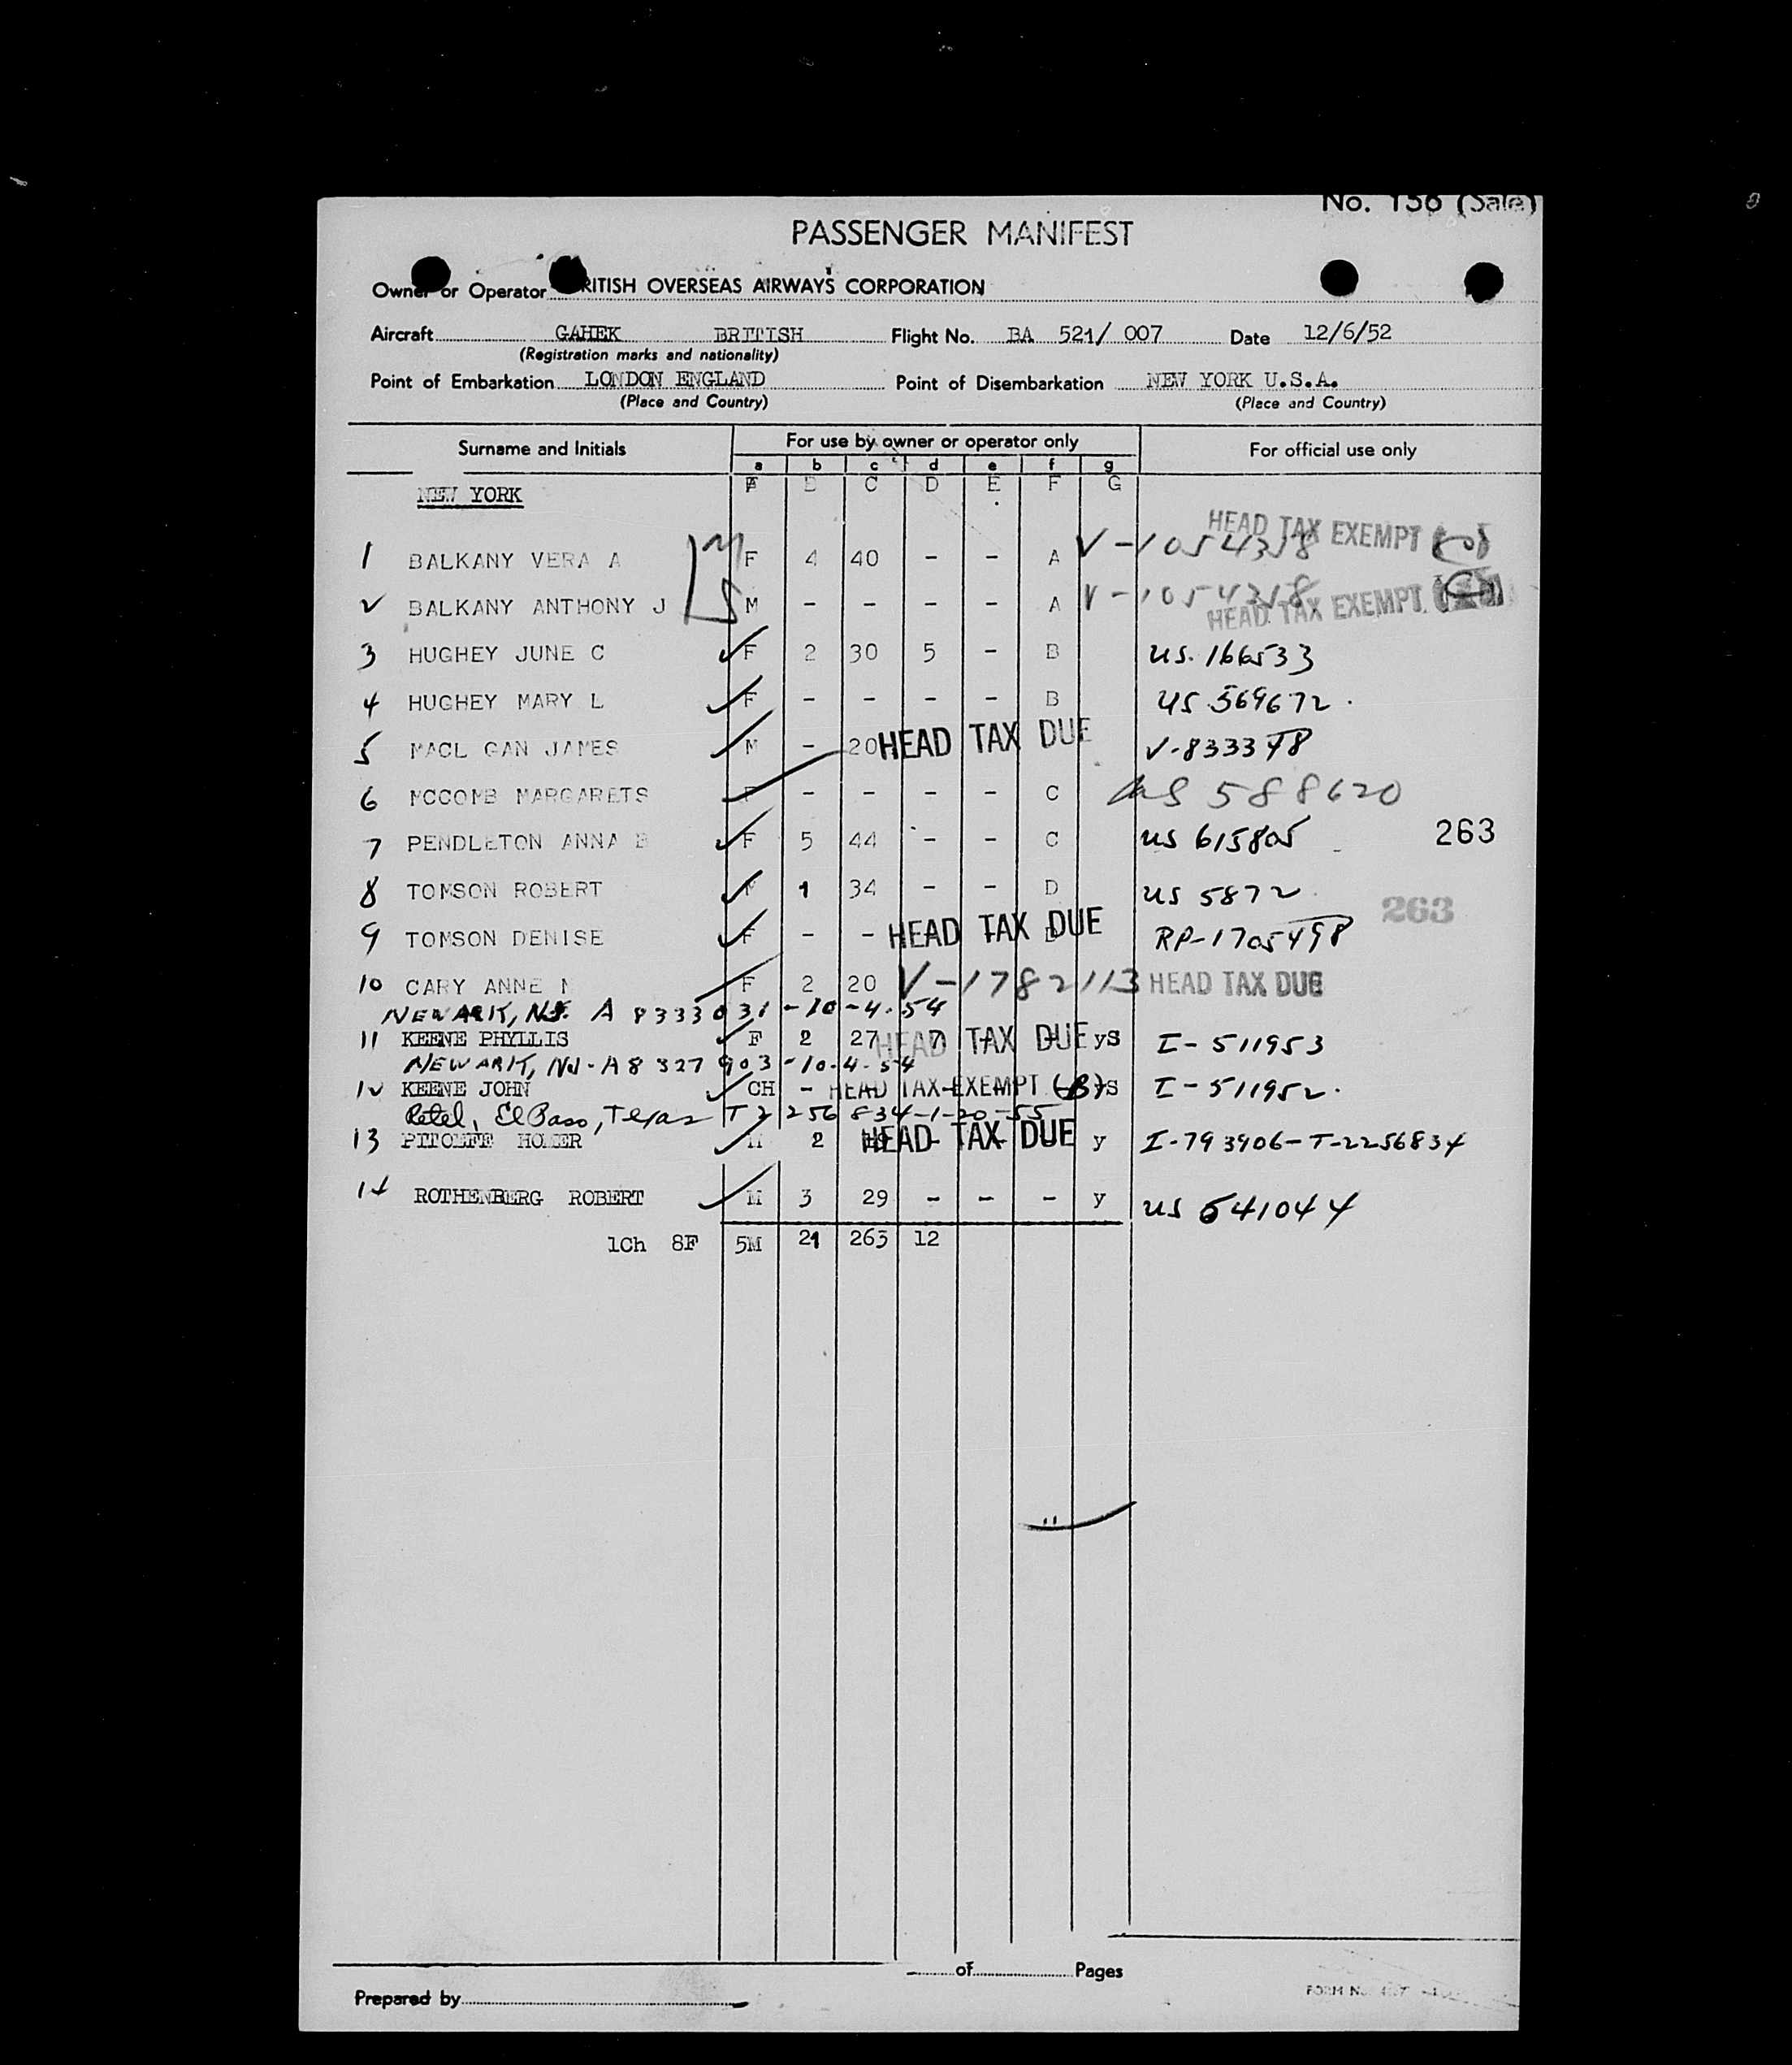 No. 158 (Sale)
PASSENGER MANIFEST
Owner or Operator RITISH OVERSEAS AIRWAYS CORPORATION
Aircraft GAHEK BRITISH Flight No. BA 521/ 007 Date 12/6/52
(Registration marks and nationality)
Point of Embarkation LONDON ENGLAND Point of Disembarkation NEW YORK U.S.A.
(Place and Country) (Place and Country)
Surname and Initials For use by owner or operator only For official use only
a b c d e f g
NEW YORK C D E F G
HEAD TAX EXEMPT
1 BALKANY VERA A M F 4 40 - - A V-1054318
2 BALKANY ANTHONY J S M - - - - A V-1054318
HEAD TAX EXEMPT
3 HUGHEY JUNE C F 2 30 5 - B US. 166533
4 HUGHEY MARY L F - - - - B US 569672.
5 JAMES M - 20 HEAD TAX DUE V-833348
6 MCCOMB MARGARETS F - - - - C US 588620
7 PENDLETON ANNA B F 5 44 - - C US 615805 263
8 TOMSON ROBERT M 1 34 - - D US 5872
263
9 TOMSON DENISE F - - HEAD TAX DUE RP-1705498
10 CARY ANNE F 2 20 V-1782113 HEAD TAX DUE
NEWARK, N.J. A 8333031-10-4-54
11 KEENE PHYLLIS F 2 27 7 HEAD TAX DUE yS I-511953
NEWARK, NJ-A8 327 903-10-4-54
12 KEENE JOHN CH - HEAD TAX EXEMPT (B) yS I-511952.
El Paso, Texas T 2 256 834-1-20-55
13 PITOLFF HOMER M 2 19 HEAD TAX DUE y I-793906-T-2256834
14 ROTHENBERG ROBERT M 3 29 - - - y US 641044
1Ch 8F 5M 21 263 12
of Pages
Prepared by
FORM